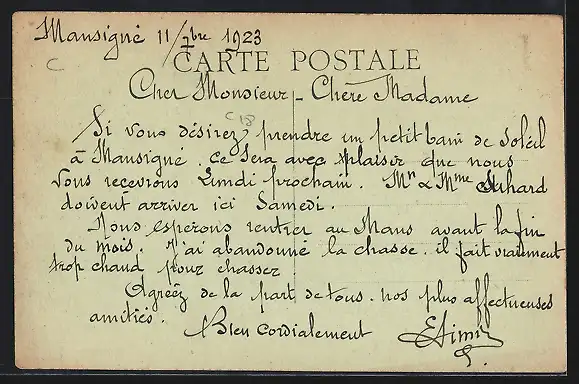 Mansigné 11/7bre 1923
CARTE POSTALE
C
Cher Monsieur - Chere Madame
C18
Si vous désirez prendre un petit bain de soleil
à Mansigné. ce sera avec plaisir que nous
vous recevrons Lundi prochain. Mr & Mme
doivent arriver ici Samedi.
Nous esperons rentrer au Mans avant la fin
du mois. J'ai abandonné la chasse. il fait vraiment
trop chaud pour chasser
Agréez de la part de tous. nos plus affectueuses
amitiés.
Bien cordialement